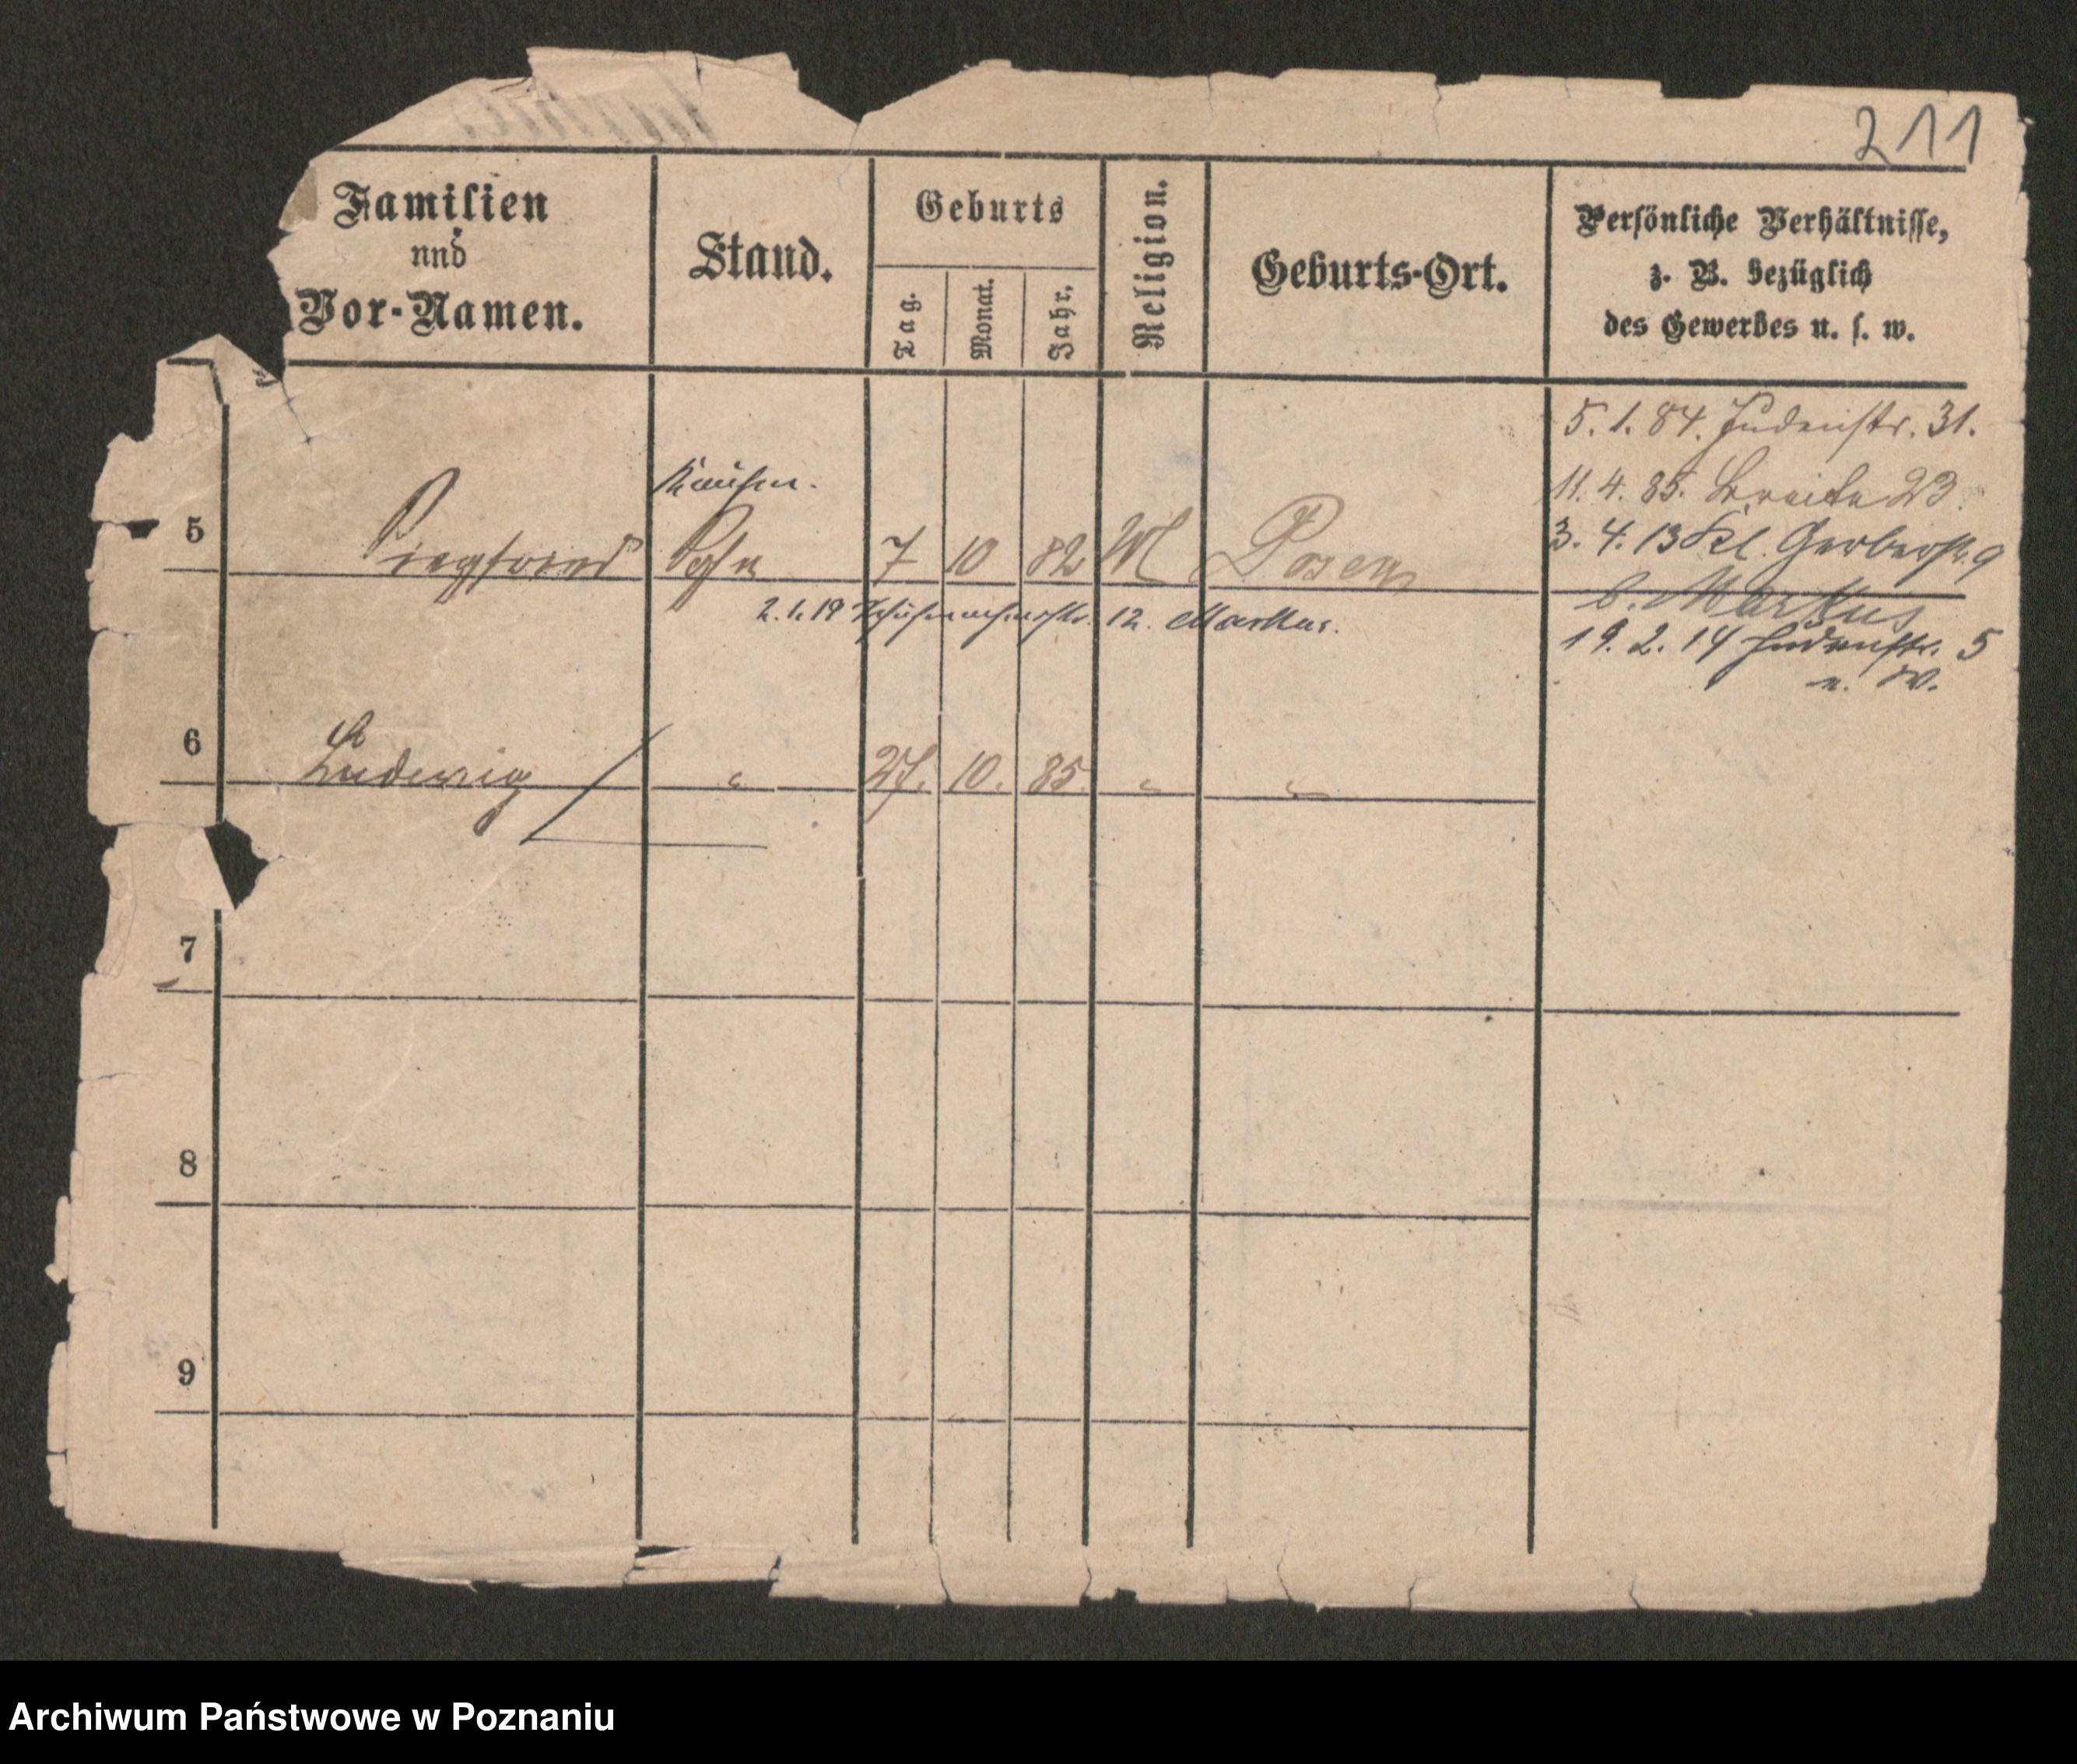 211
Familien
und
Vor-Namen.
Stand.
Geburts
Tag.
Monat.
Jahr.
Religion.
Geburts-Ort.
Persönliche Verhältnisse,
z. B. bezüglich
des Gewerbes u. s. w.
5. 1. 84. Judenstr. 31.
11. 4. 85. Breite 23.
3. 4. 13 Kl. Gerberstr. 9
b. Markus
19. 2. 14 Judenstr. 5
b. W.
Kaufm.
5 Siegfried Sohn 7 10 82 M Posen
2. 1. 19 12. Markus.
6 Ludwig " 27. 10. 85. " "
7
8
9
Archiwum Państwowe w Poznaniu